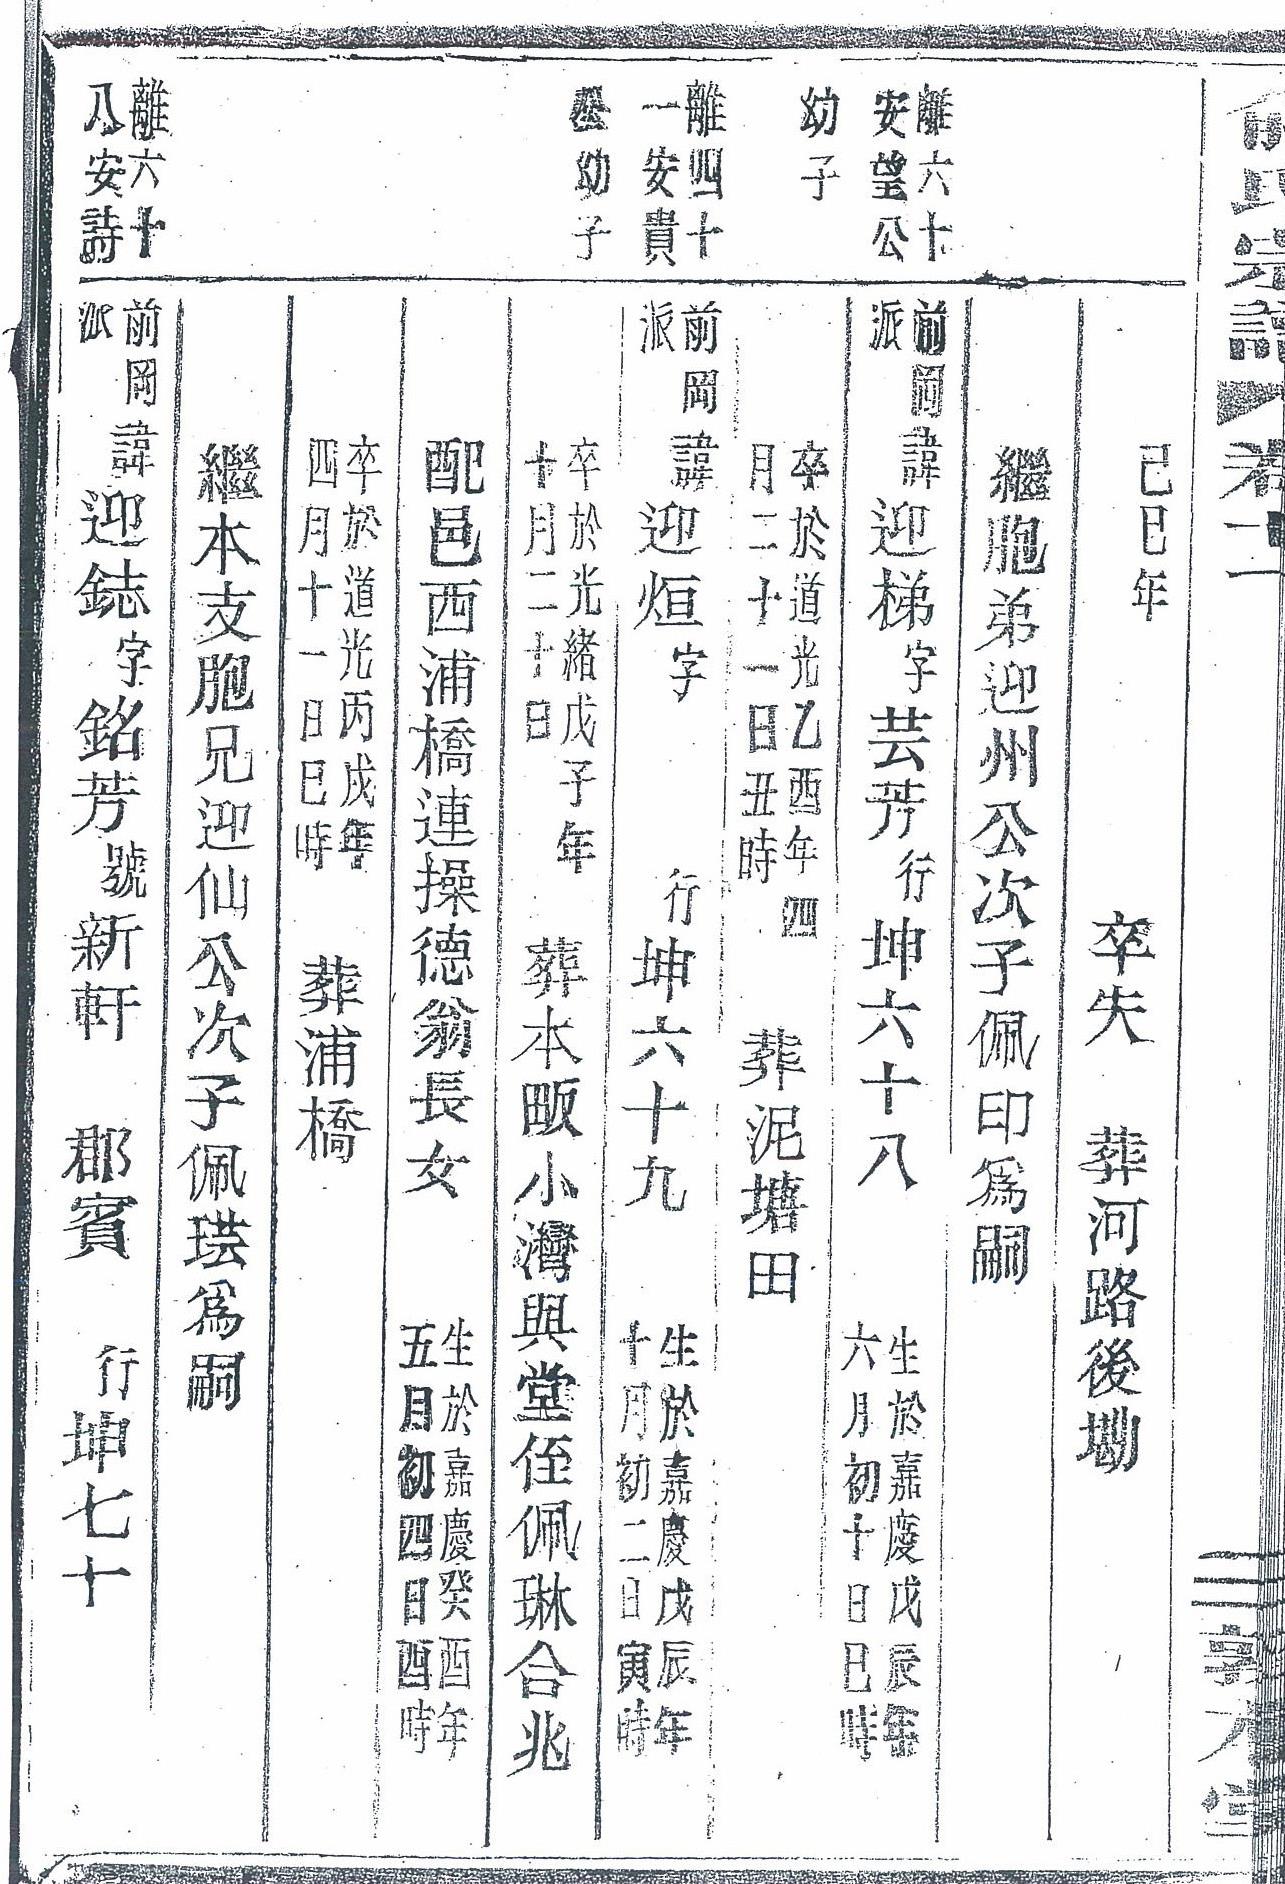 俞氏宗譜
卷十一
己巳年 卒失 葬河路後塝
繼胞弟迎州公次子佩印為嗣
離六十
安望公
幼子
前岡派諱迎梯字芸芳行坤六十八 生於嘉慶戊辰年
六月初十日巳時
卒於道光乙酉年四
月二十一日丑時 葬泥塘田
離四十
一安貴
公幼子
前岡派諱迎烜字 行坤六十九 生於嘉慶戊辰年
十月初二日寅時
卒於光緒戊子年
十月二十日 葬本畈小灣與堂侄佩琳合兆
配邑西浦橋連操德翁長女 生於嘉慶癸酉年
五月初四日酉時
卒於道光丙戌年
四月十一日巳時 葬浦橋
繼本支胞兄迎仙公次子佩琪為嗣
離六十
八安詩
前岡派諱迎鋕字銘芳號新軒 郡賓 行坤七十
三
敦本堂